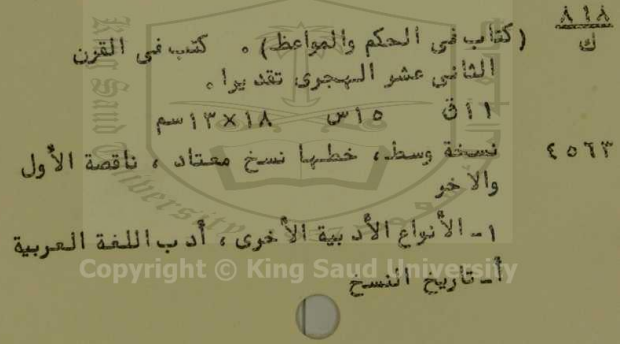 ٨١٨
ك
(كتاب في الحكم والمواعظ) ٠ كتب في القرن
الثاني عشر الهجرى تقديرا ٠
١١ق ١٥س ١٨×١٣سم
٤٥٦٣ نسخة وسط، خطها نسخ معتاد ، ناقصة الأول
والآخر
١- الأنواع الأدبية الأخرى ، أدب اللغة العربية
أ- تاريخ النسخ
King Saud University
Copyright © King Saud University